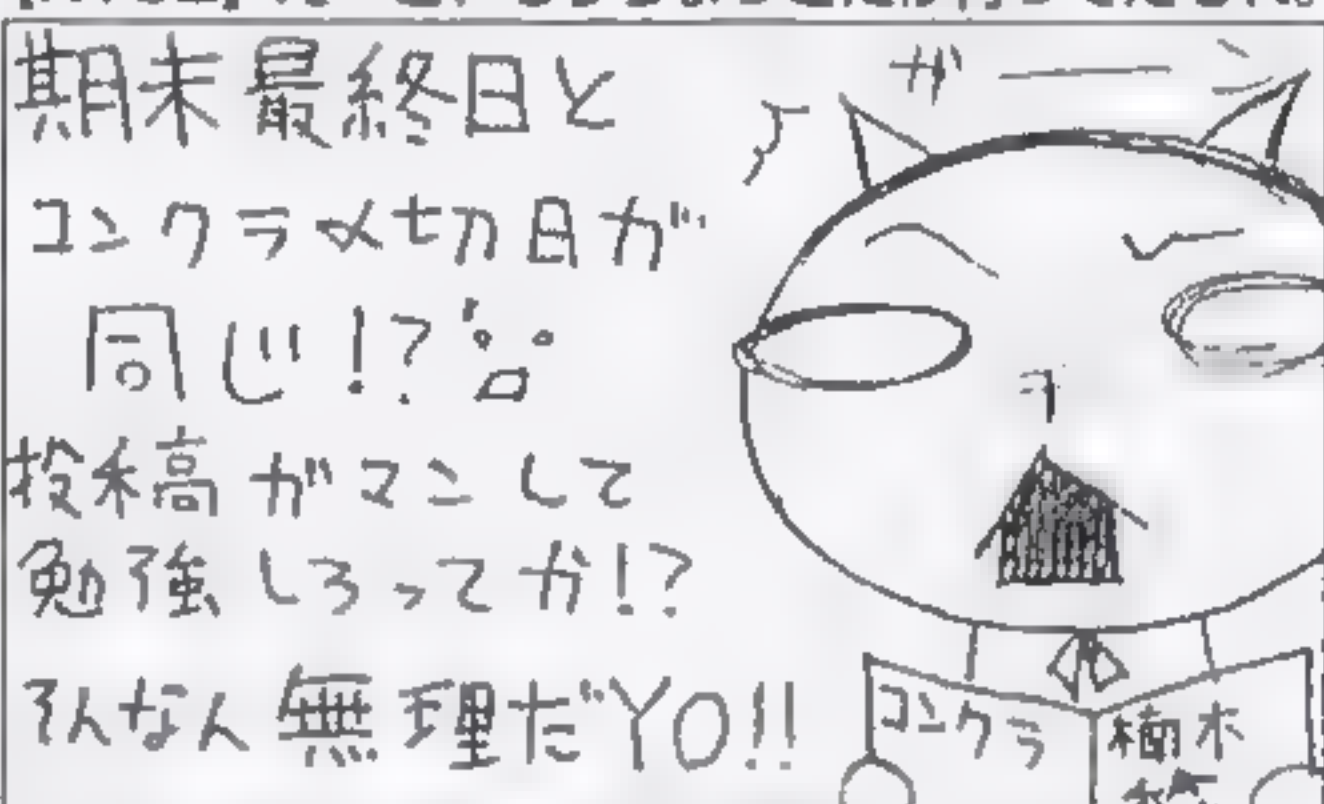 期末最終日と
コンクラ〆切日が
同じ!?
投稿ガマンして
勉強しろってか!?
そんなん無理だYO!!
ガーン
コンクラ